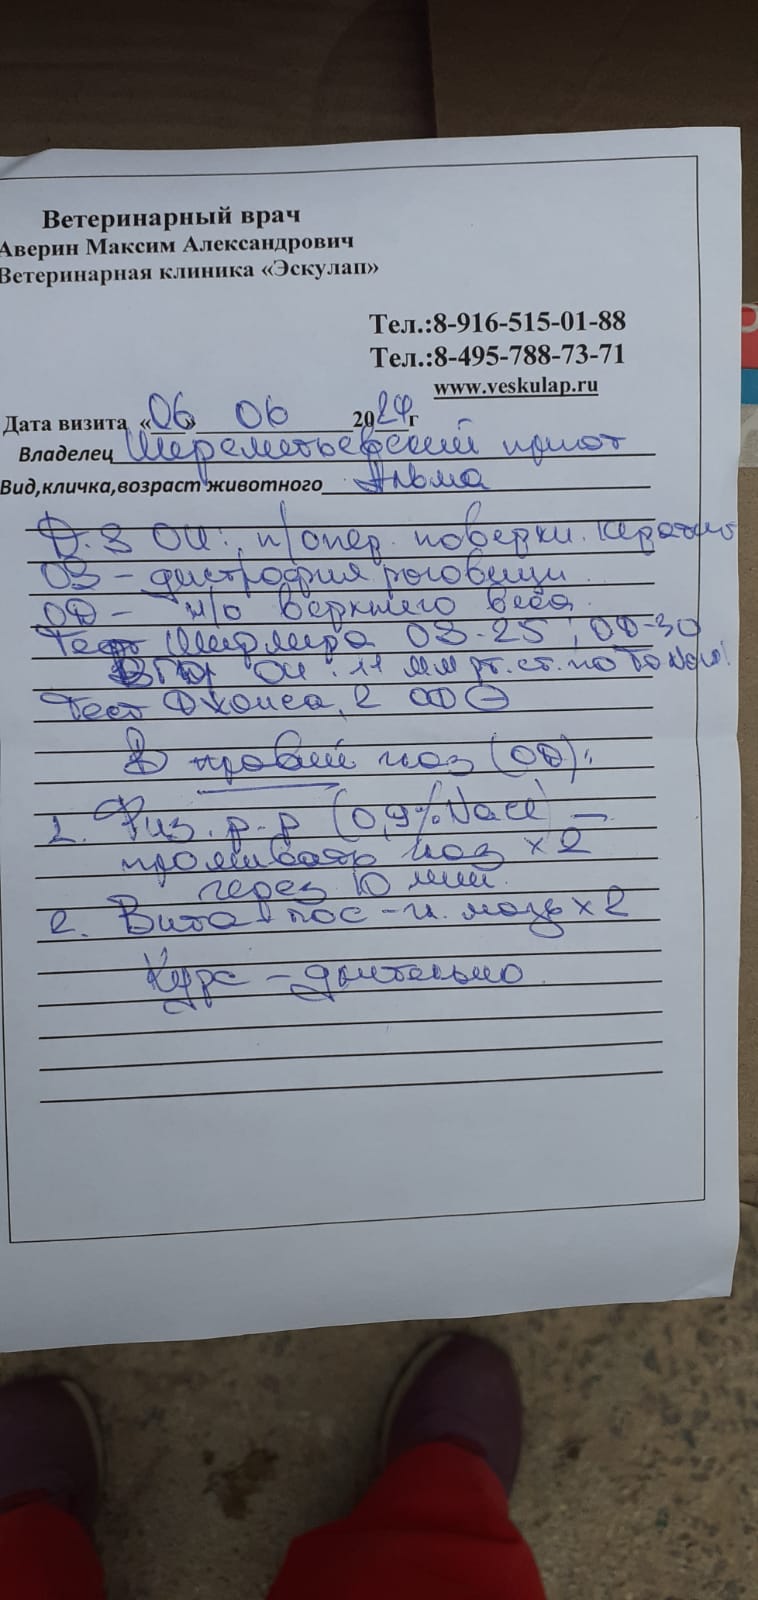 Ветеринарный врач
Аверин Максим Александрович
Ветеринарная клиника «Эскулап»
Тел.:8-916-515-01-88
Тел.:8-495-788-73-71
www.veskulap.ru
Дата визита «06» 06 2024г
Владелец Шереметьевский приют
Вид,кличка,возраст животного Альма
Д.З OU: п/опер. поверхн. кератит
OS - дистрофия роговицы.
OD - н/о верхнего века.
Тест Ширмера OS-25; OD-30
ВГД OU: 11 мм рт.ст. по
Тест Джонса 2 OD ⊖
В правый глаз (OD):
1. Физ. р-р (0,9% NaCl) -
промывать глаз х 2
через 10 мин.
2. Вита-пос - гл. мазь х 2
Курс - длительно.